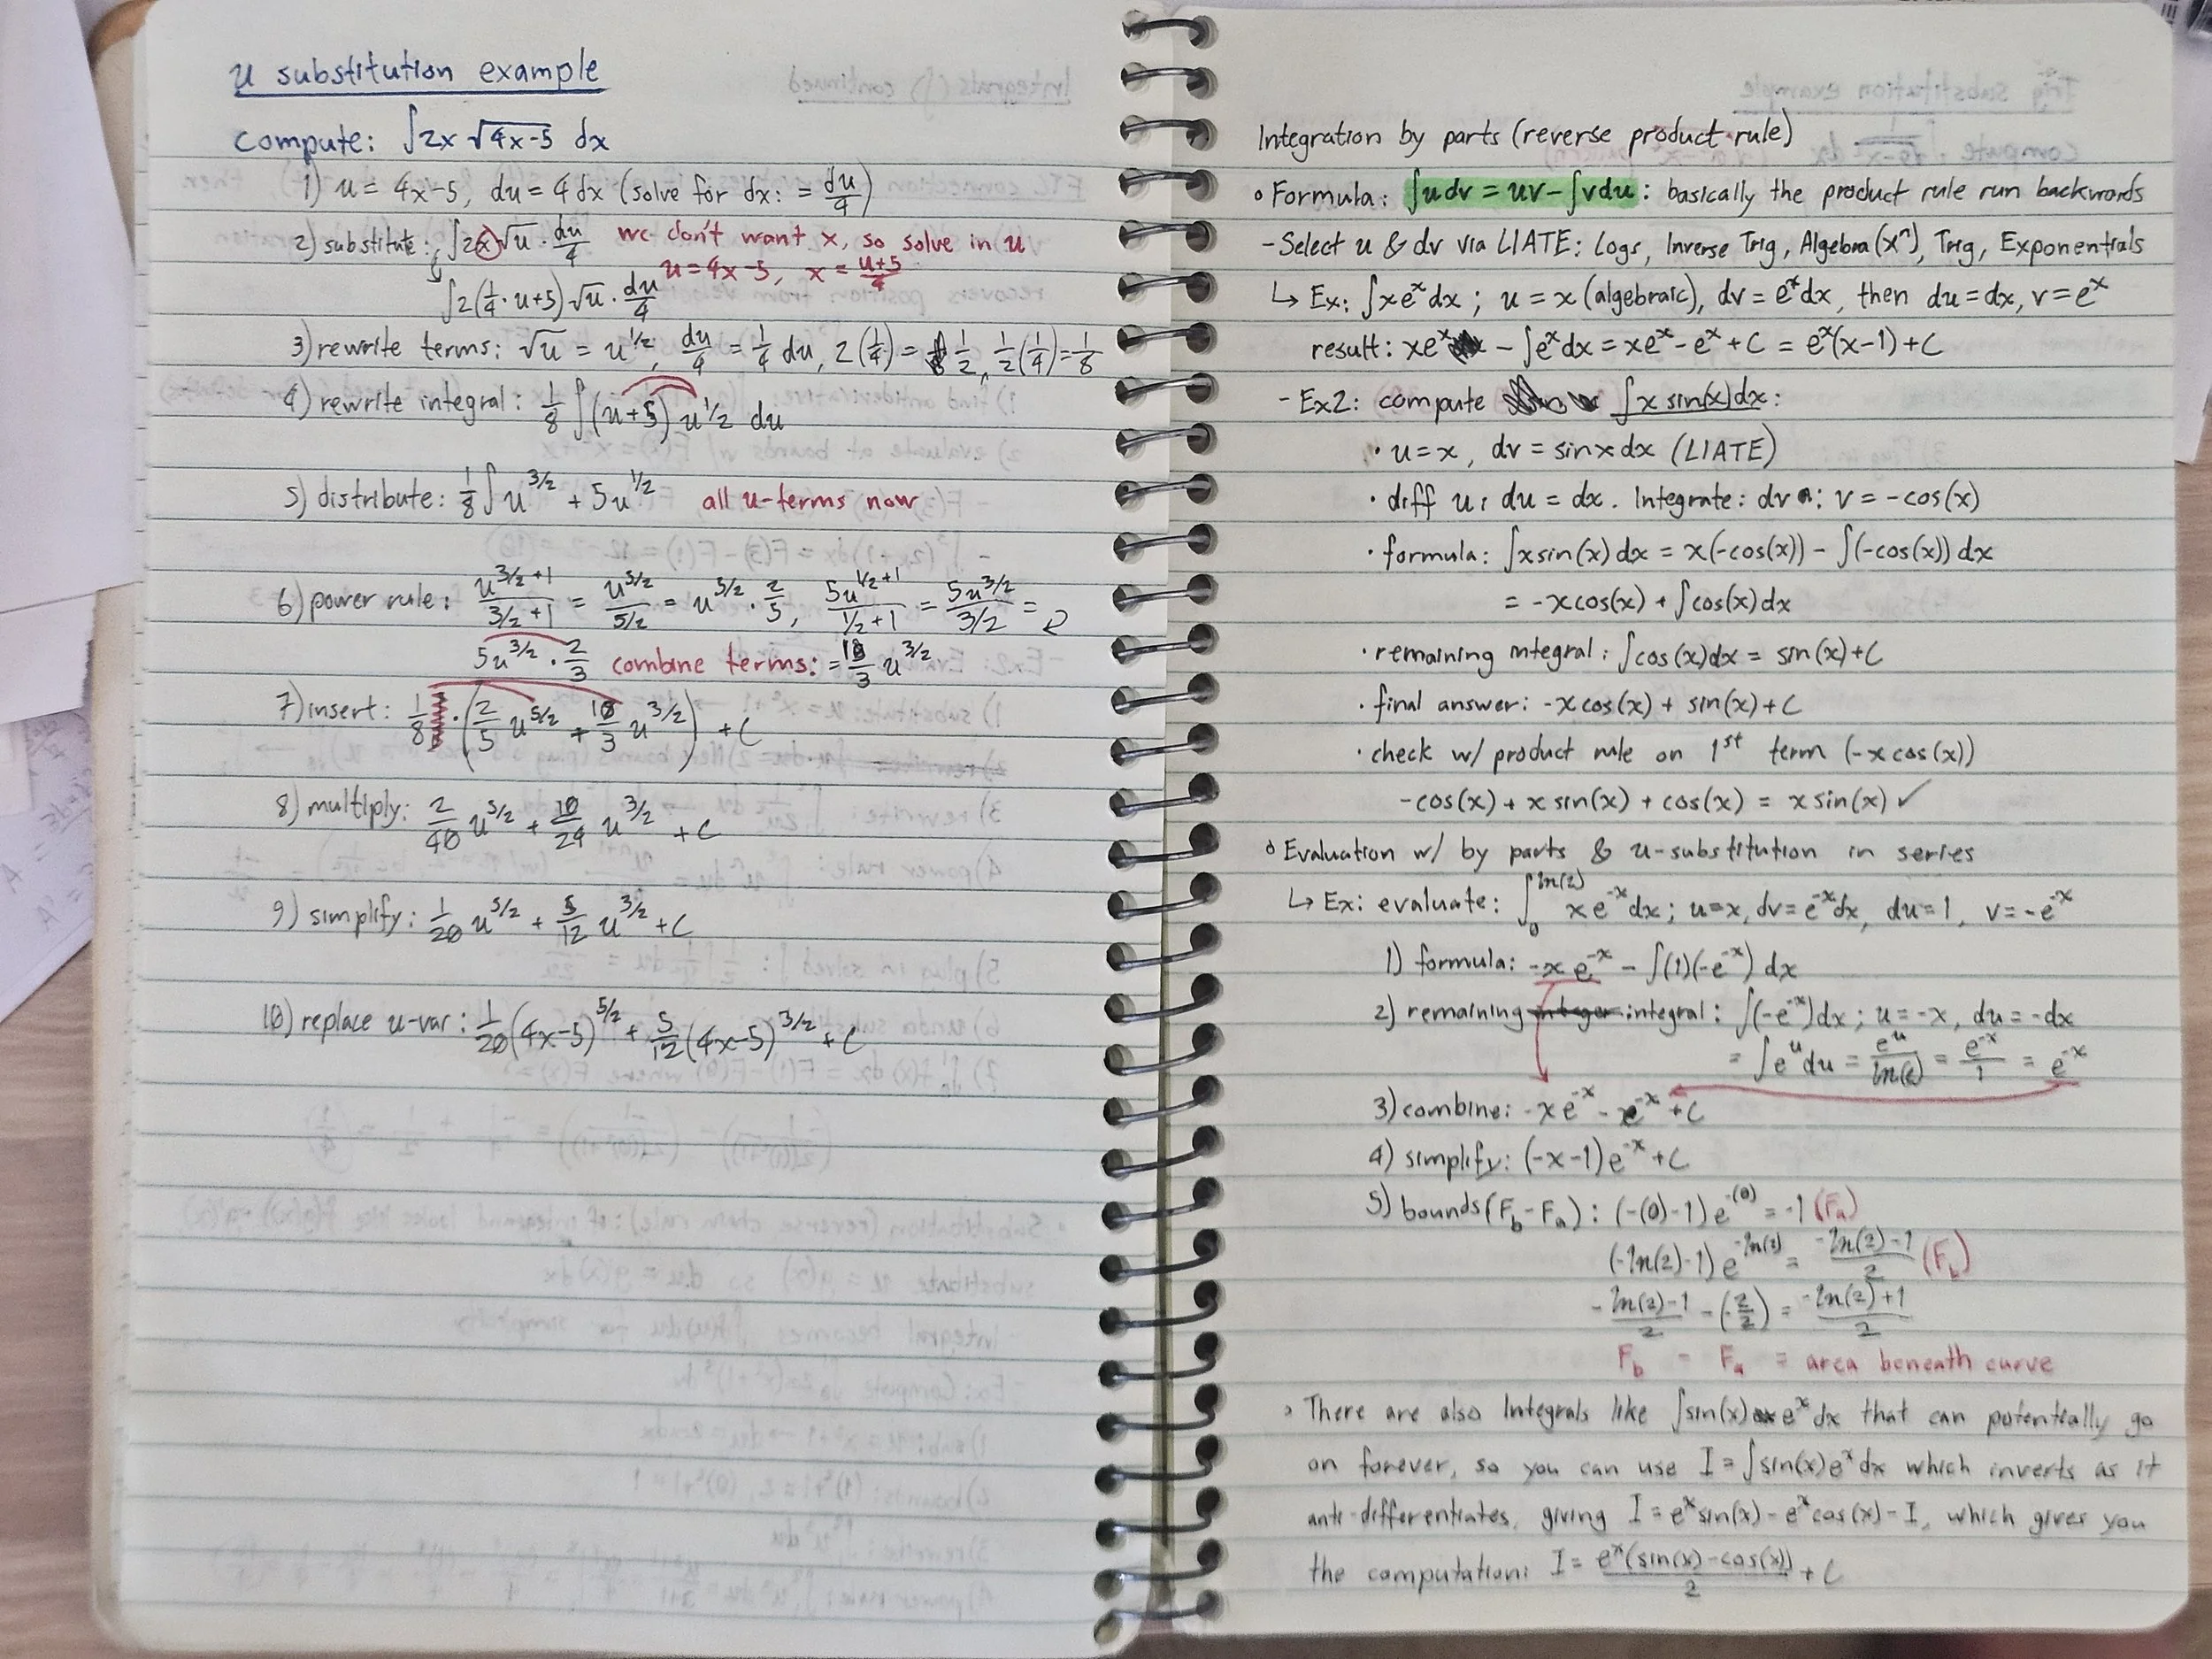 u substitution example
compute: ∫2x √(4x-5) dx
1) u = 4x-5, du = 4dx (solve for dx: = du/4)
2) substitute: ∫2x√u · du/4 we don't want x, so solve in u
u = 4x-5, x = (u+5)/4
∫2(1/4 · u+5)√u · du/4
3) rewrite terms: √u = u^1/2, du/4 = 1/4 du, 2(1/4) = 1/2, 1/2(1/4) = 1/8
4) rewrite integral: 1/8 ∫(u+5) u^1/2 du
5) distribute: 1/8 ∫ u^3/2 + 5u^1/2 all u-terms now
6) power rule: u^(3/2+1)/(3/2+1) = u^5/2/(5/2) = u^5/2 · 2/5, 5u^(1/2+1)/(1/2+1) = 5u^3/2/(3/2) =
5u^3/2 · 2/3 combine terms: = 10/3 u^3/2
7) insert: 1/8 · (2/5 u^5/2 + 10/3 u^3/2) + C
8) multiply: 2/40 u^5/2 + 10/24 u^3/2 + C
9) simplify: 1/20 u^5/2 + 5/12 u^3/2 + C
10) replace u-var: 1/20(4x-5)^5/2 + 5/12(4x-5)^3/2 + C
Integration by parts (reverse product rule)
◦ Formula: ∫u dv = uv - ∫v du : basically the product rule run backwards
- Select u & dv via LIATE: Logs, Inverse Trig, Algebra (x^n), Trig, Exponentials
↳ Ex: ∫xe^x dx ; u = x (algebraic), dv = e^x dx, then du = dx, v = e^x
result: xe^x - ∫e^x dx = xe^x - e^x + C = e^x(x-1) + C
- Ex2: compute ∫x sin(x)dx:
· u = x, dv = sinx dx (LIATE)
· diff u: du = dx. Integrate: dv: v = -cos(x)
· formula: ∫xsin(x) dx = x(-cos(x)) - ∫(-cos(x)) dx
= -xcos(x) + ∫cos(x) dx
· remaining integral: ∫cos(x)dx = sin(x)+C
· final answer: -xcos(x) + sin(x) + C
· check w/ product rule on 1st term (-xcos(x))
-cos(x) + x sin(x) + cos(x) = x sin(x) ✓
◦ Evaluation w/ by parts & u-substitution in series
↳ Ex: evaluate: ∫_0^ln(2) xe^-x dx ; u=x, dv=e^-x dx, du=1, v=-e^-x
1) formula: -xe^-x - ∫(1)(-e^-x) dx
2) remaining integer integral: ∫(-e^-x)dx ; u = -x, du = -dx
= ∫e^u du = e^u/ln(e) = e^-x/1 = e^-x
3) combine: -xe^-x - e^-x + C
4) simplify: (-x-1)e^-x + C
5) bounds (F_b - F_a) : (-(0)-1)e^-(0) = -1 (F_a)
(-ln(2)-1) e^-ln(2) = (-ln(2)-1)/2 (F_b)
(-ln(2)-1)/2 - (-2/2) = (-ln(2)+1)/2
F_b - F_a = area beneath curve
◦ There are also Integrals like ∫sin(x) e^x dx that can potentially go
on forever, so you can use I = ∫sin(x)e^x dx which inverts as it
anti-differentiates, giving I = e^x sin(x) - e^x cos(x) - I, which gives you
the computation: I = e^x(sin(x)-cos(x))/2 + C